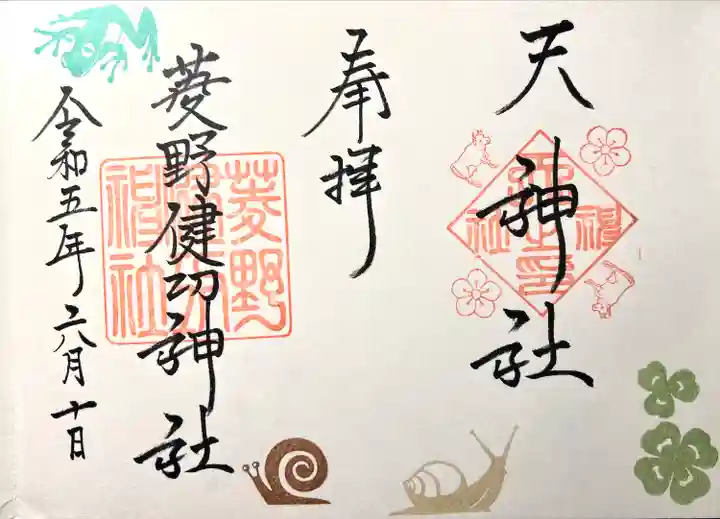 天神社
奉拝
菱野健功神社
令和五年六月十日
菱野健功神社